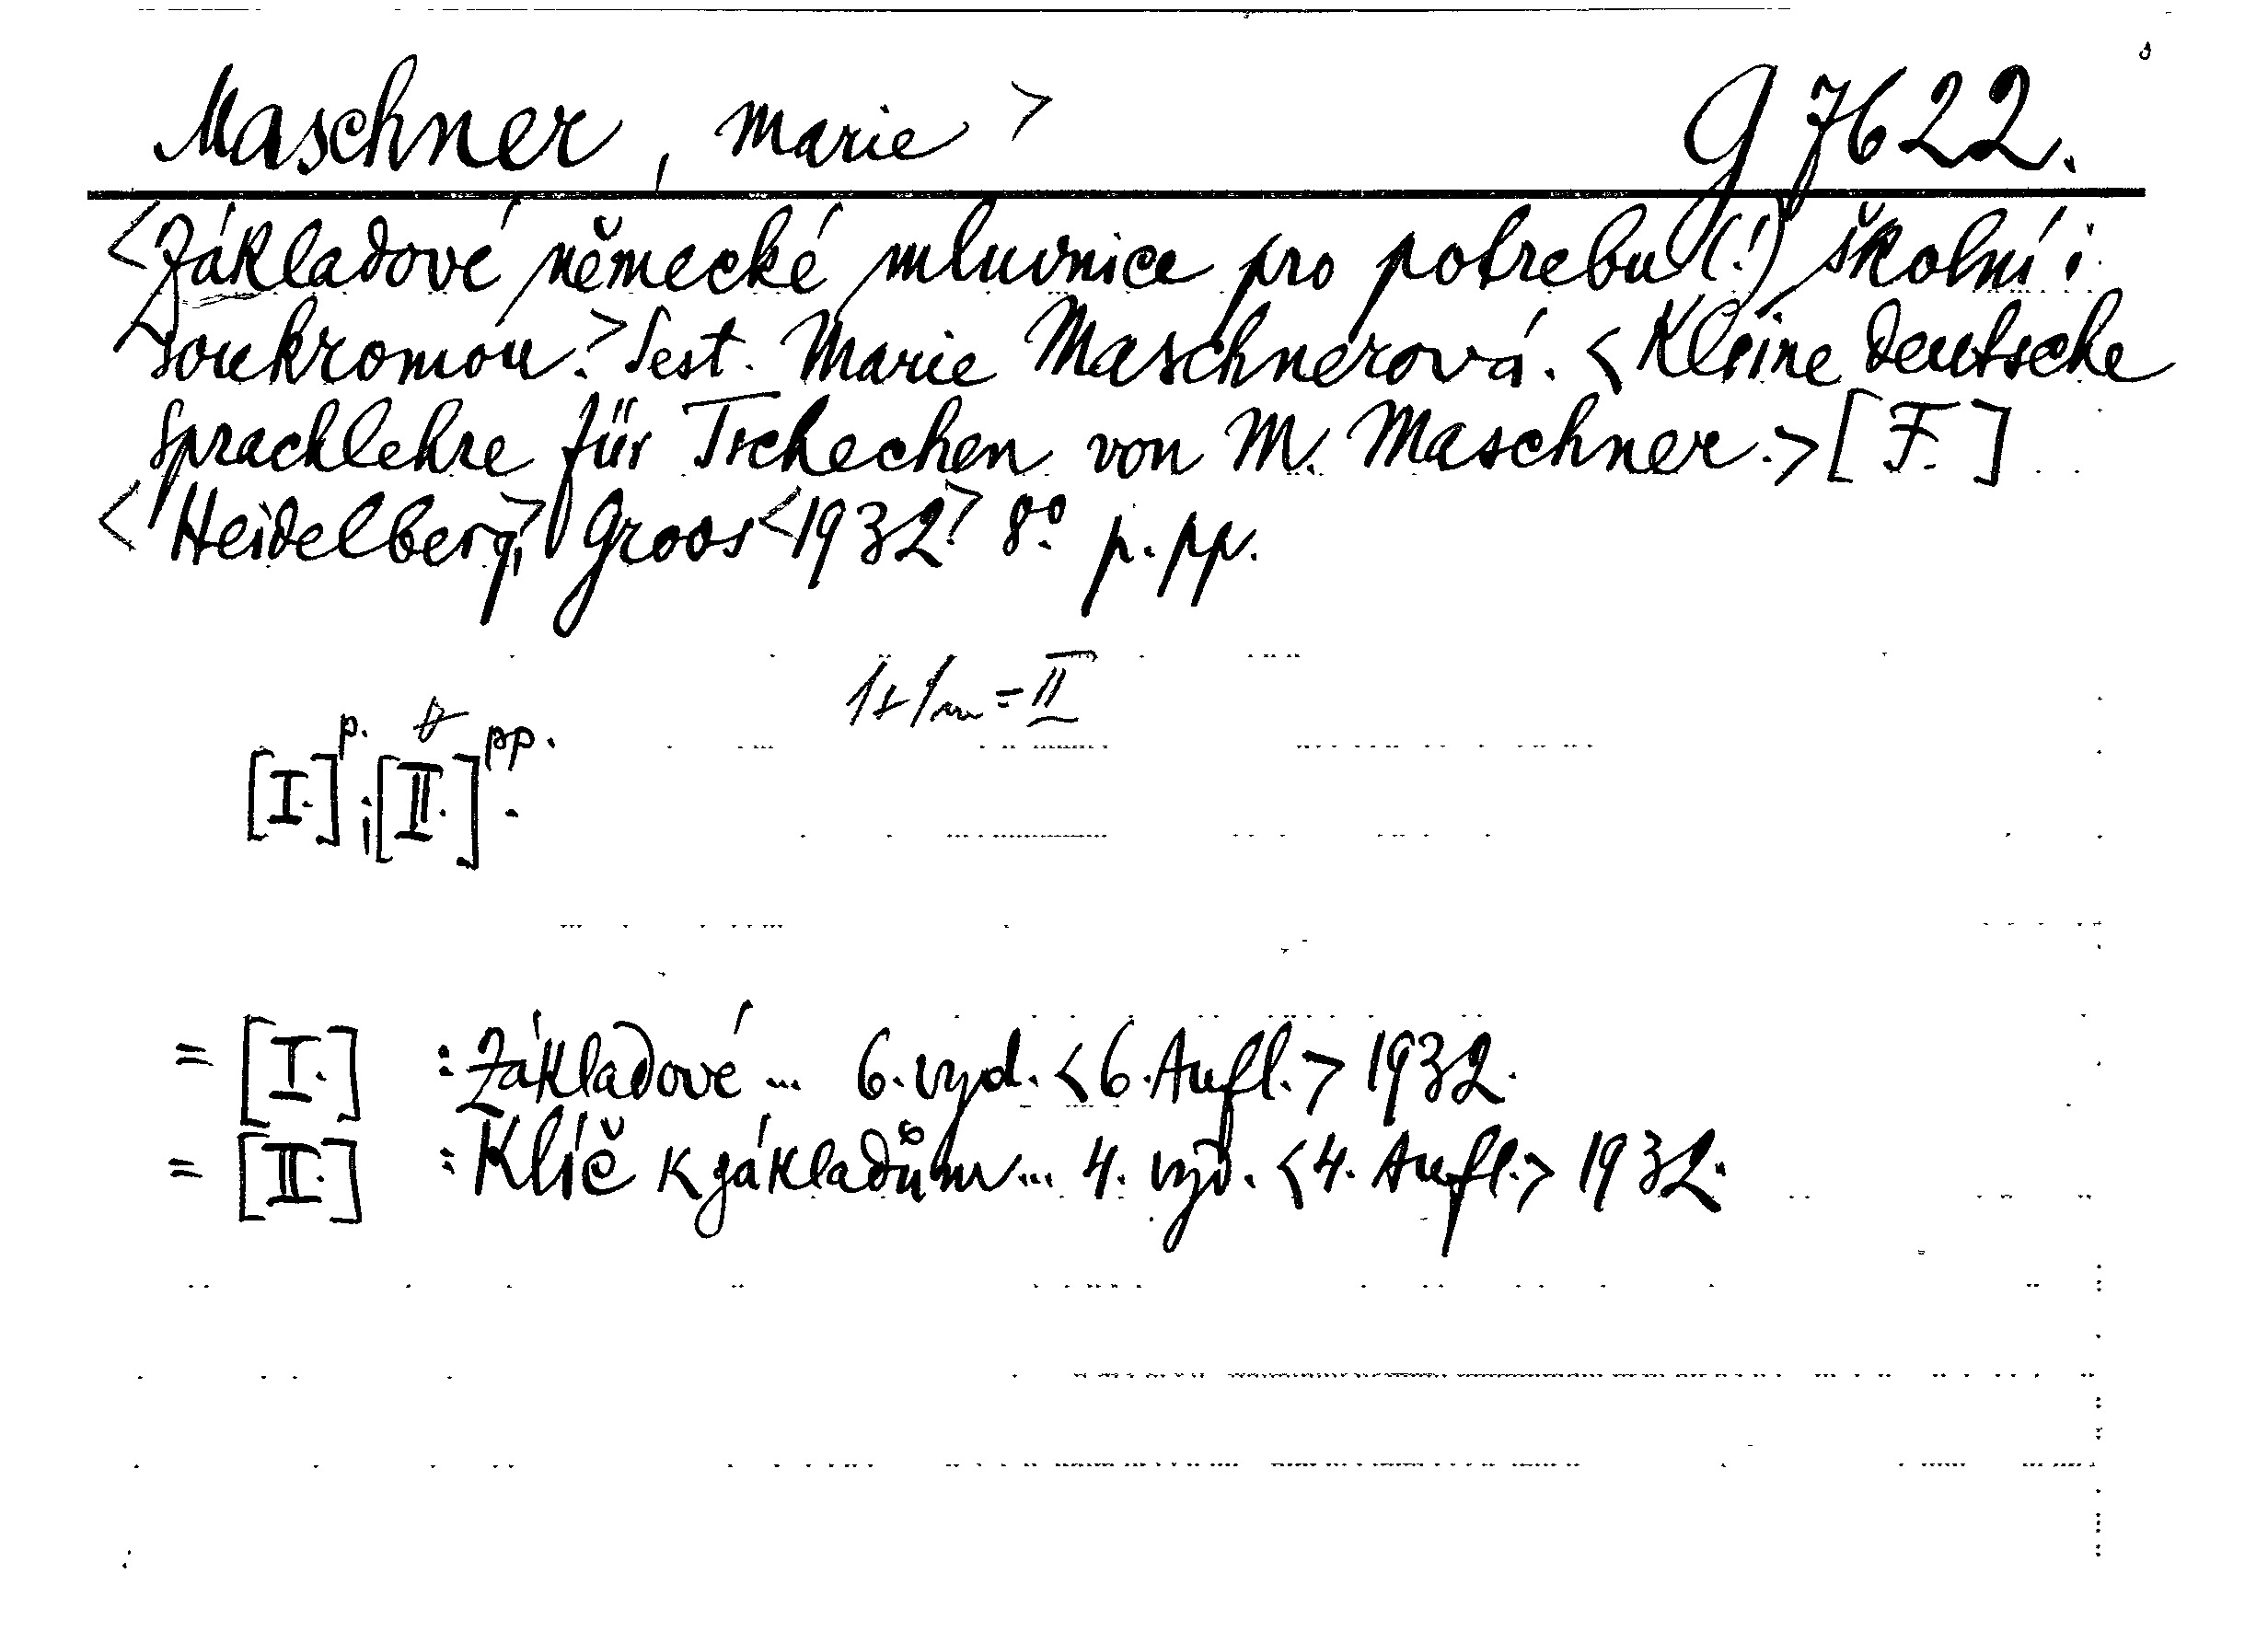 Maschner, Marie > G 7622.
<Základové německé mluvnice pro potrebu (!) školní i
soukromou.> Sest. Marie Maschnerová. <Kleine deutsche
Sprachlehre für Tschechen von M. Maschner.> [F.]
<Heidelberg,> Groos <1932.> 8° p. pp.
1+1 = II
[I.] p. ; [II.] pp. .
= [I.] : Základové ... 6. vyd. <6. Aufl.> 1932.
= [II.] : Klíč k základům ... 4. vyd. <4. Aufl.> 1932.